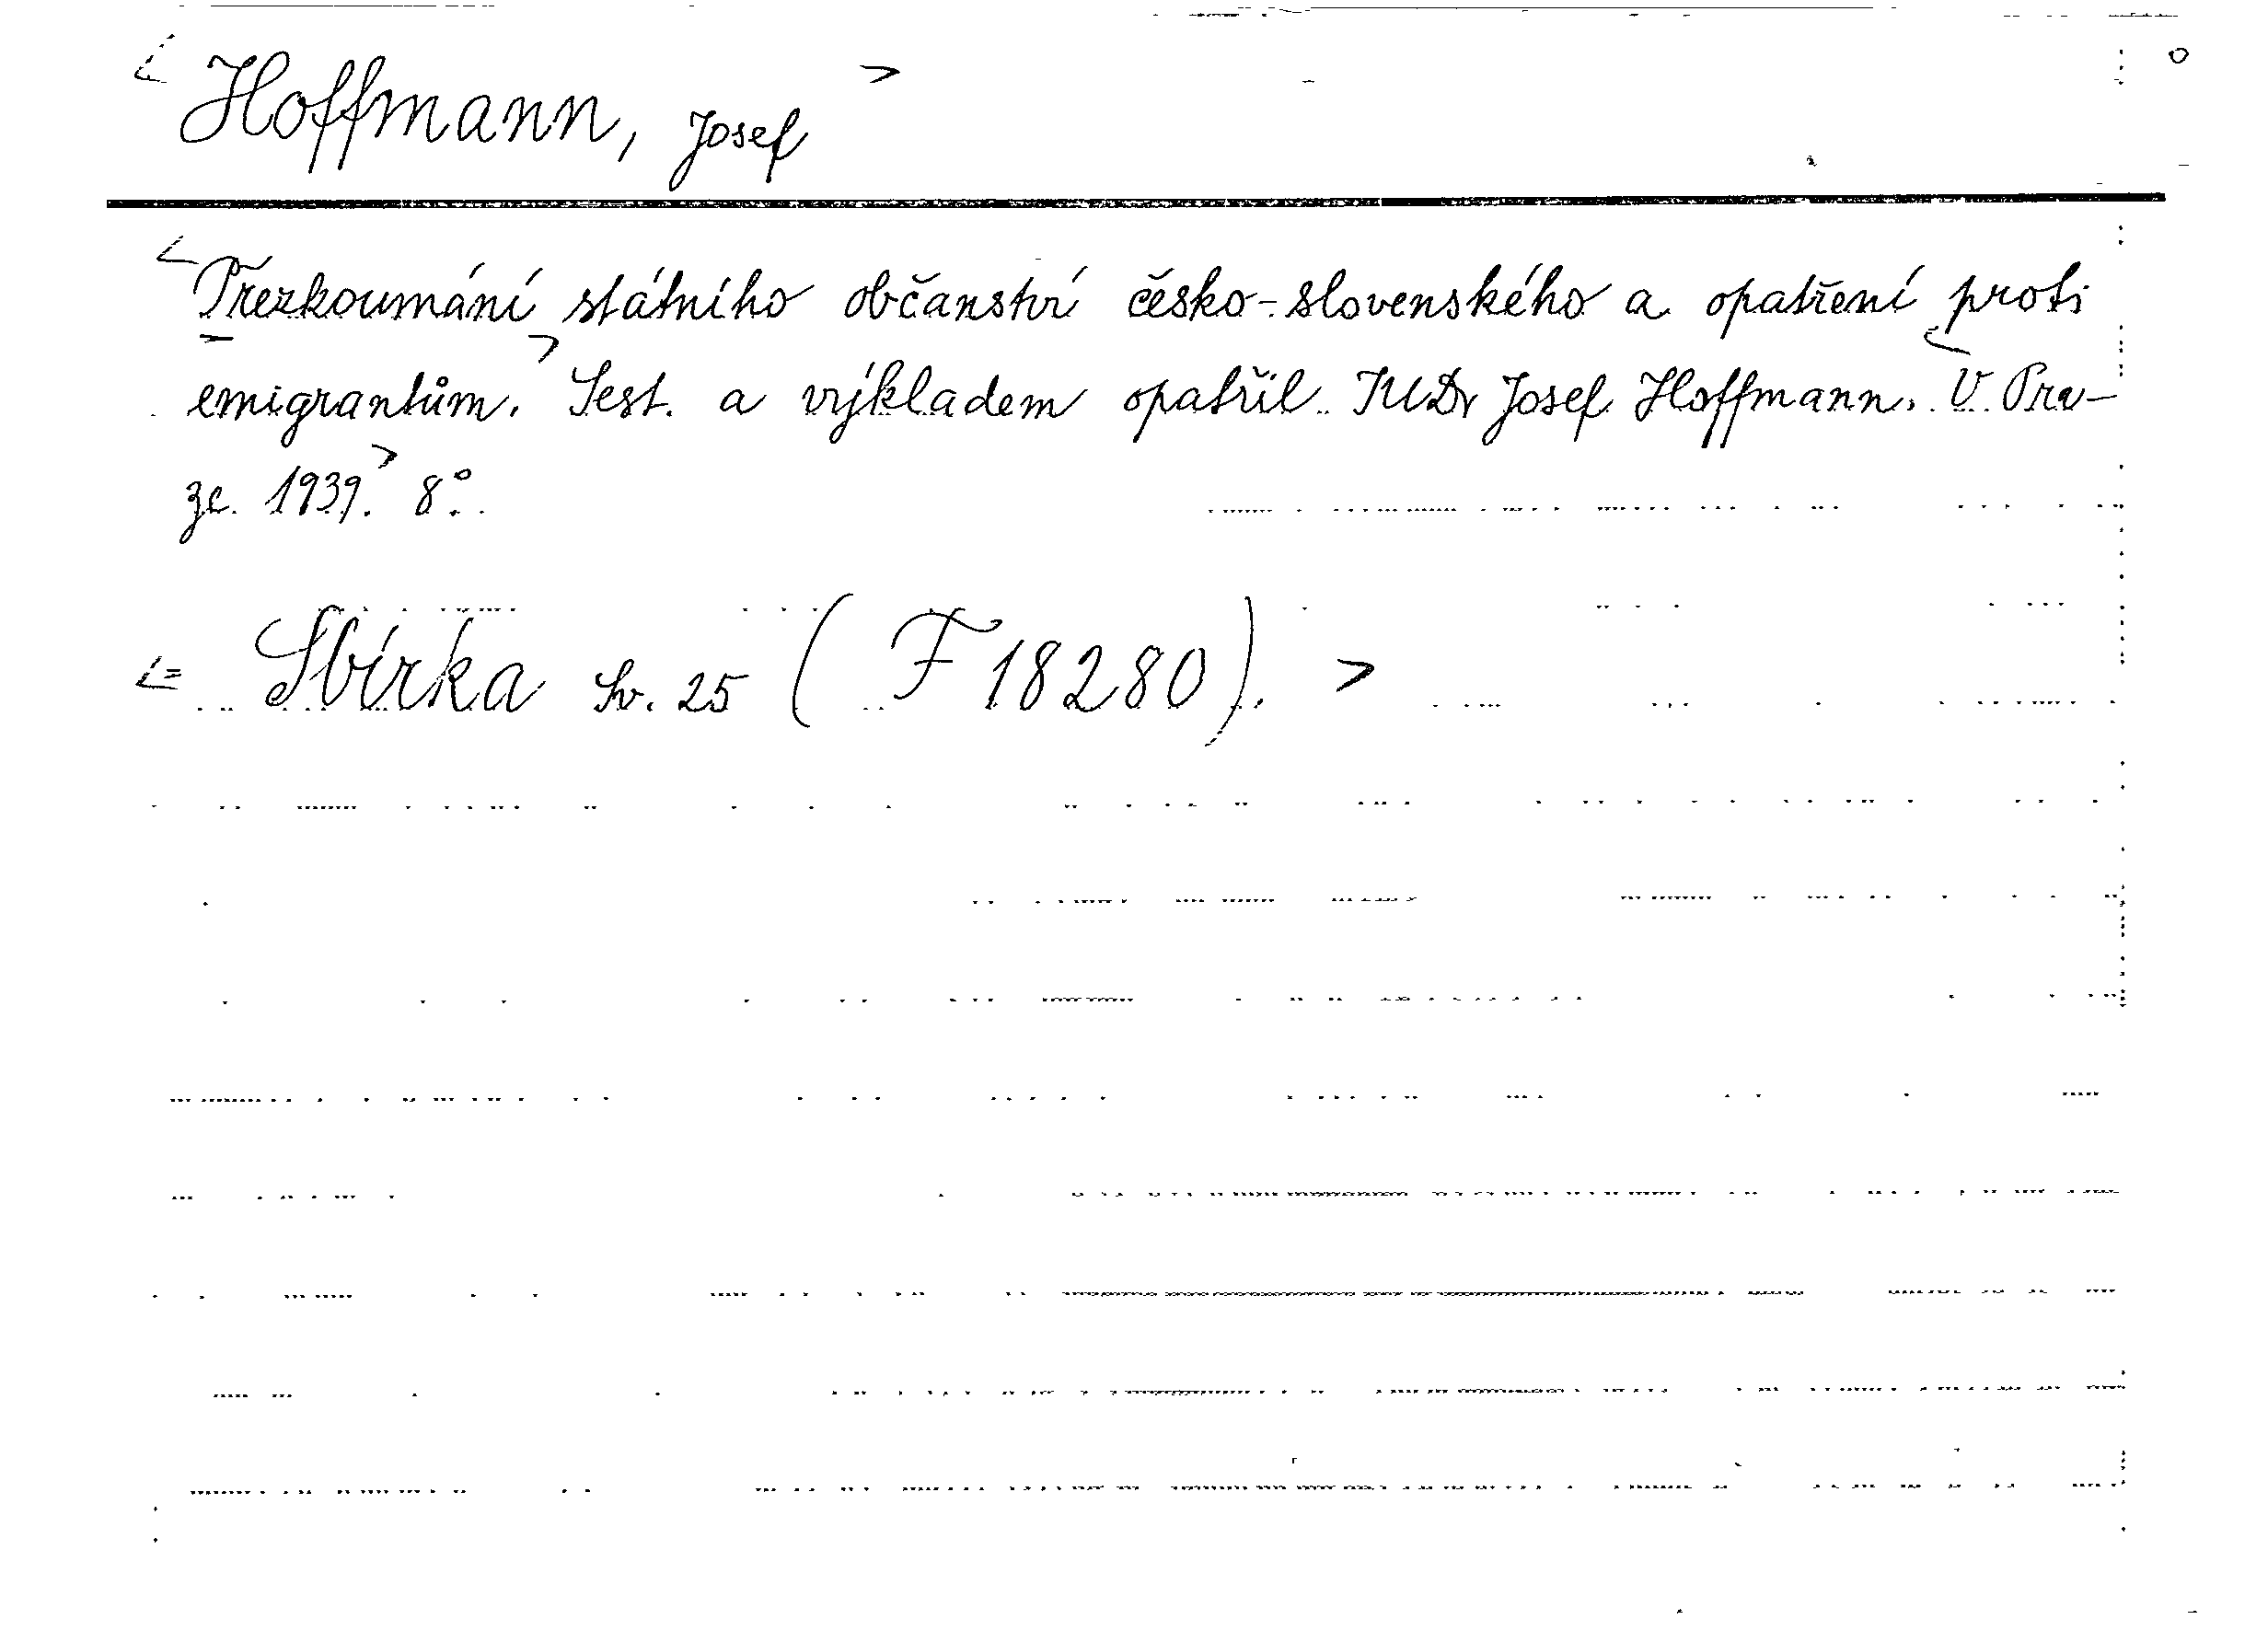 Hoffmann, Josef
Přezkoumání státního občanství česko-slovenského a opatření proti
emigrantům. Sest. a výkladem opatřil JUDr Josef Hoffmann. V Pra-
ze 1939. 8°.
= Sbírka sv. 25 (F 18280).